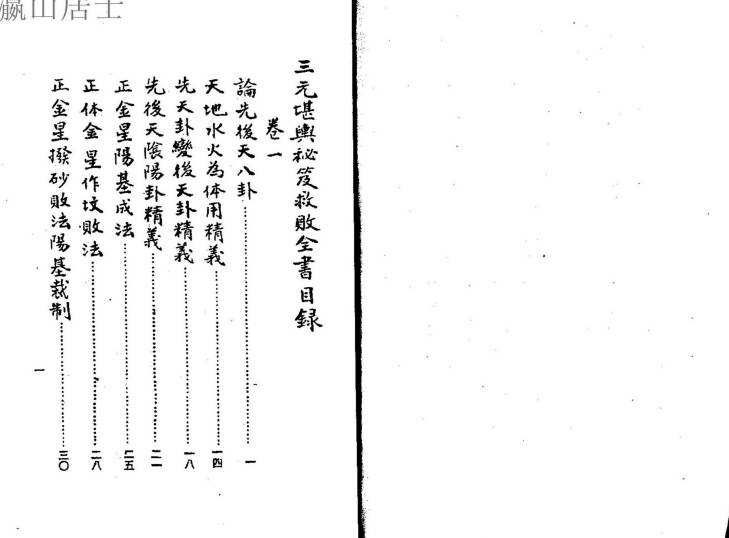 瀛山居士
三元堪輿祕笈救敗全書目録
卷一
論先後天八卦……一
天地水火為体用精義……一四
先天卦變後天卦精義……一八
先後天陰陽卦精義……二一
正金星陽基成法……二五
正体金星作坟敗法……二八
正金星撥砂敗法陽基裁制……三〇
一